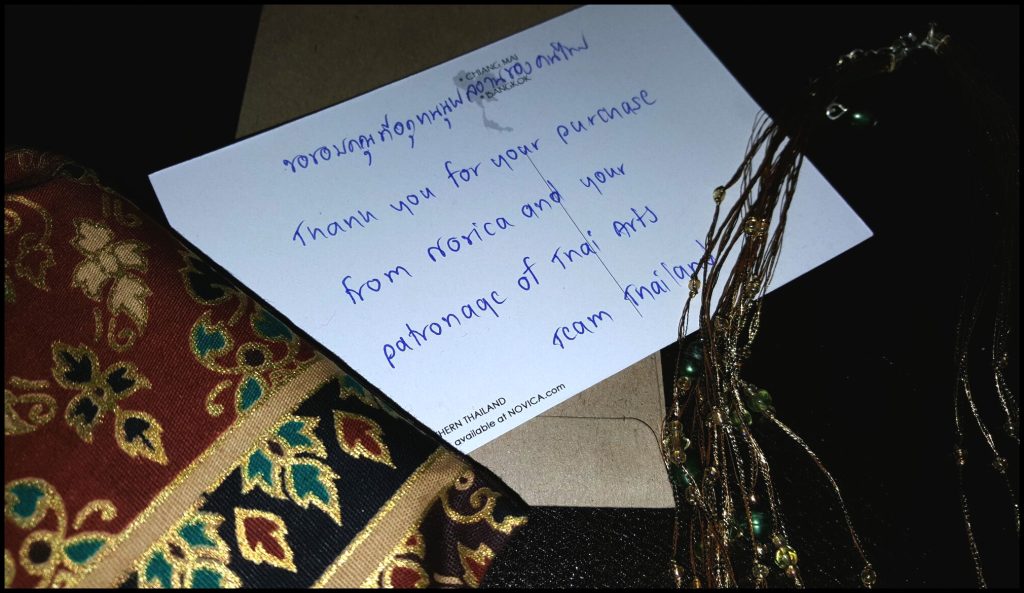 • CHIANG MAI
• BANGKOK
ขอขอบคุณที่อุดหนุนผลงานของคนไทย
Thank you for your purchase
from Novica and your
patronage of Thai Arts
Team Thailand
HERN THAILAND
available at NOVICA.com